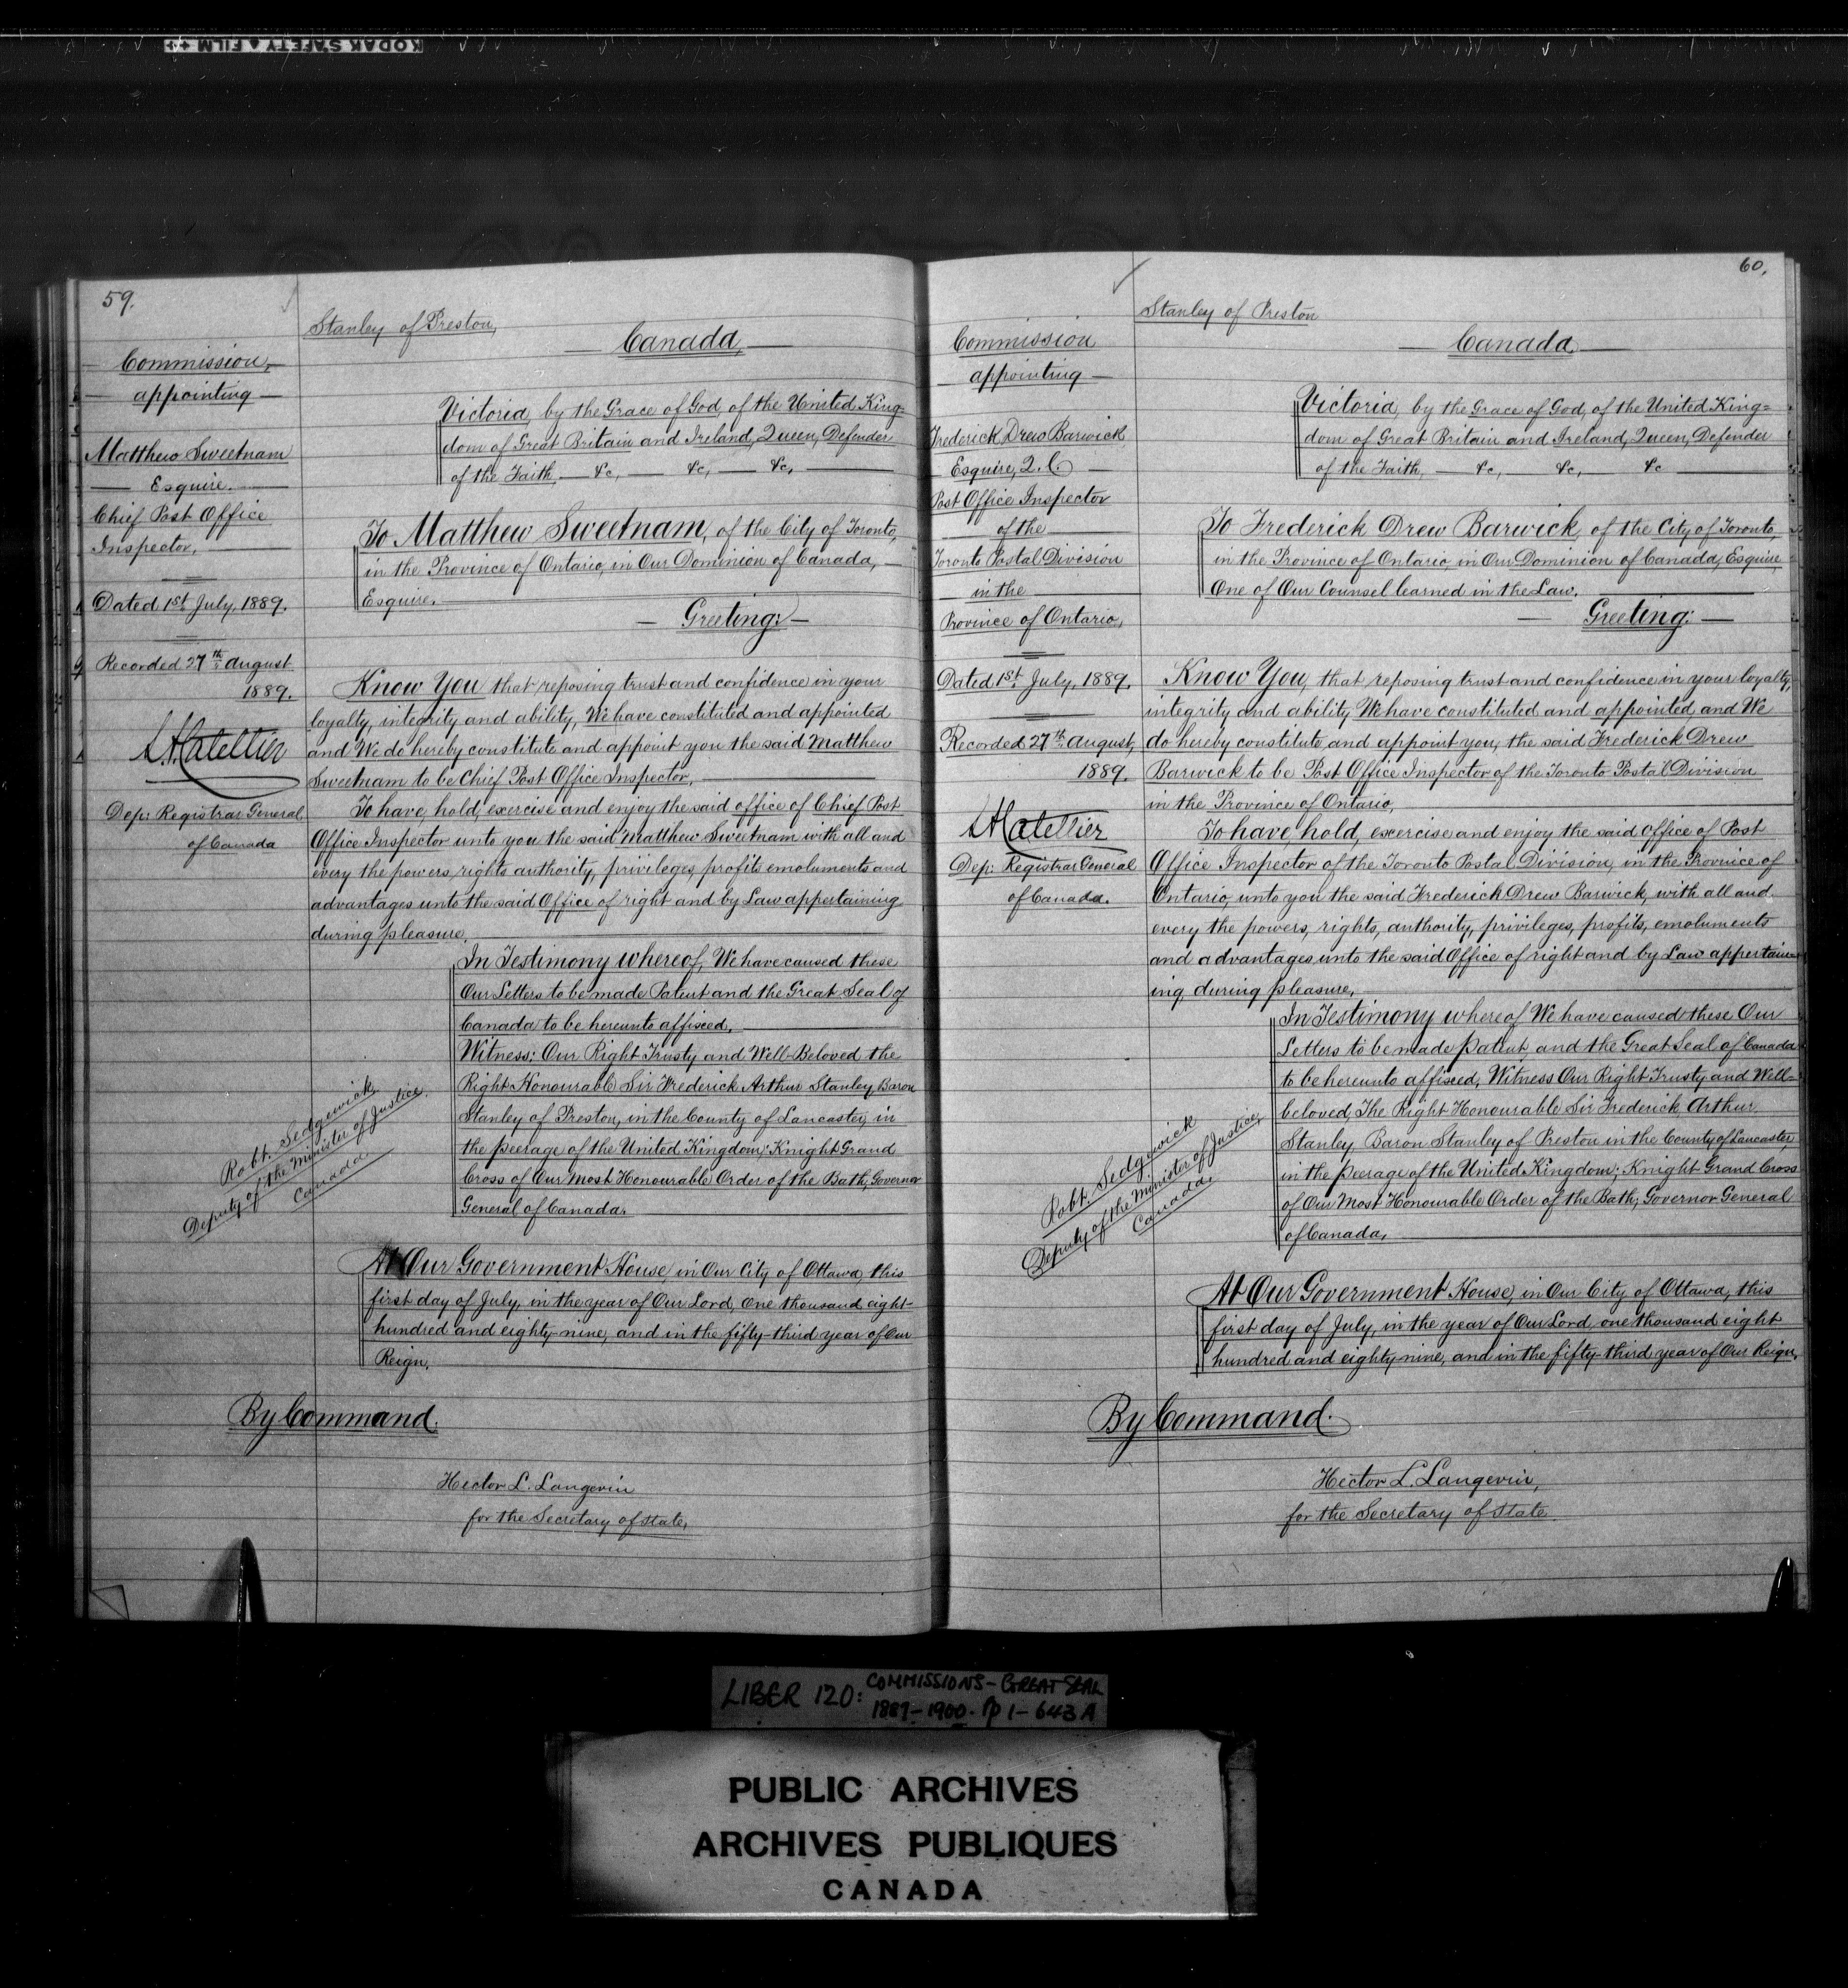 KODAK SAFETY FILM
59.
Commission,
appointing
Matthew Sweetnam
Esquire.
Chief Post Office
Inspector,
Dated 1st July, 1889.
Recorded 27th August
1889.
Dep: Registrar General
of Canada
Stanley of Preston,
Canada,
Victoria, by the Grace of God, of the United King=
dom of Great Britain and Ireland, Queen, Defender
of the Faith, &c, &c, &c,
To Matthew Sweetnam, of the City of Toronto,
in the Province of Ontario, in Our Dominion of Canada,
Esquire.
Greeting:
Know You that reposing trust and confidence in your
loyalty, integrity and ability, We have constituted and appointed
and We do hereby constitute and appoint you the said Matthew
Sweetnam to be Chief Post Office Inspector,
To have, hold, exercise and enjoy the said office of Chief Post
Office Inspector unto you the said Matthew Sweetnam with all and
every the powers, rights authority, privileges, profits emoluments and
advantages unto the said Office of right and by Law appertaining
during pleasure,
In Testimony whereof, We have caused these
Our Letters to be made Patent and the Great Seal of
Canada to be hereunto affixed,
Witness: Our Right Trusty and Well-Beloved the
Right Honourable Sir Frederick Arthur Stanley Baron
Stanley of Preston, in the County of Lancaster, in
the peerage of the United Kingdom; Knight Grand
Cross of Our Most Honourable Order of the Bath, Governor
General of Canada.
Robt. Sedgewick
Deputy of the Minister of Justice.
Canada
At Our Government House, in Our City of Ottawa, this
first day of July, in the year of Our Lord, one thousand eight-
hundred and eighty-nine, and in the fifty-third year of Our
Reign,
By Command.
Hector L. Langevin
for the Secretary of State,
60.
Commission
appointing
Frederick Drew Barwick
Esquire, Q.C.
Post Office Inspector
of the
Toronto Postal Division
in the
Province of Ontario,
Dated 1st July, 1889.
Recorded 27th August,
1889.
Dep: Registrar General
of Canada.
Stanley of Preston
Canada
Victoria, by the Grace of God, of the United King=
dom of Great Britain and Ireland, Queen, Defender
of the Faith, &c, &c, &c
To Frederick Drew Barwick, of the City of Toronto,
in the Province of Ontario, in Our Dominion of Canada, Esquire,
One of Our Counsel learned in the Law.
Greeting:
Know You, that reposing trust and confidence in your loyalty,
integrity and ability We have constituted and appointed and We
do hereby constitute and appoint you, the said Frederick Drew
Barwick to be Post Office Inspector of the Toronto Postal Division
in the Province of Ontario,
To have, hold, exercise and enjoy the said office of Post
Office Inspector of the Toronto Postal Division, in the Province of
Ontario, unto you the said Frederick Drew Barwick, with all and
every the powers, rights, authority, privileges, profits, emoluments
and advantages unto the said Office of right and by Law appertain=
ing during pleasure,
In Testimony whereof We have caused these Our
Letters to be made Patent and the Great Seal of Canada
to be hereunto affixed, Witness Our Right Trusty and Well-
beloved, The Right Honourable Sir Frederick Arthur
Stanley Baron Stanley of Preston in the County of Lancaster,
in the peerage of the United Kingdom; Knight Grand Cross
of Our Most Honourable Order of the Bath; Governor General
of Canada,
Robt. Sedgwick
Deputy of the Minister of Justice,
Canada.
At Our Government House, in Our City of Ottawa, this
first day of July, in the year of Our Lord, one thousand eight
hundred and eighty-nine, and in the fifty-third year of Our Reign,
By Command.
Hector L. Langevin,
for the Secretary of State
LIBER 120: COMMISSIONS - GREAT SEAL
1889-1900. pp 1-643A
PUBLIC ARCHIVES
ARCHIVES PUBLIQUES
CANADA